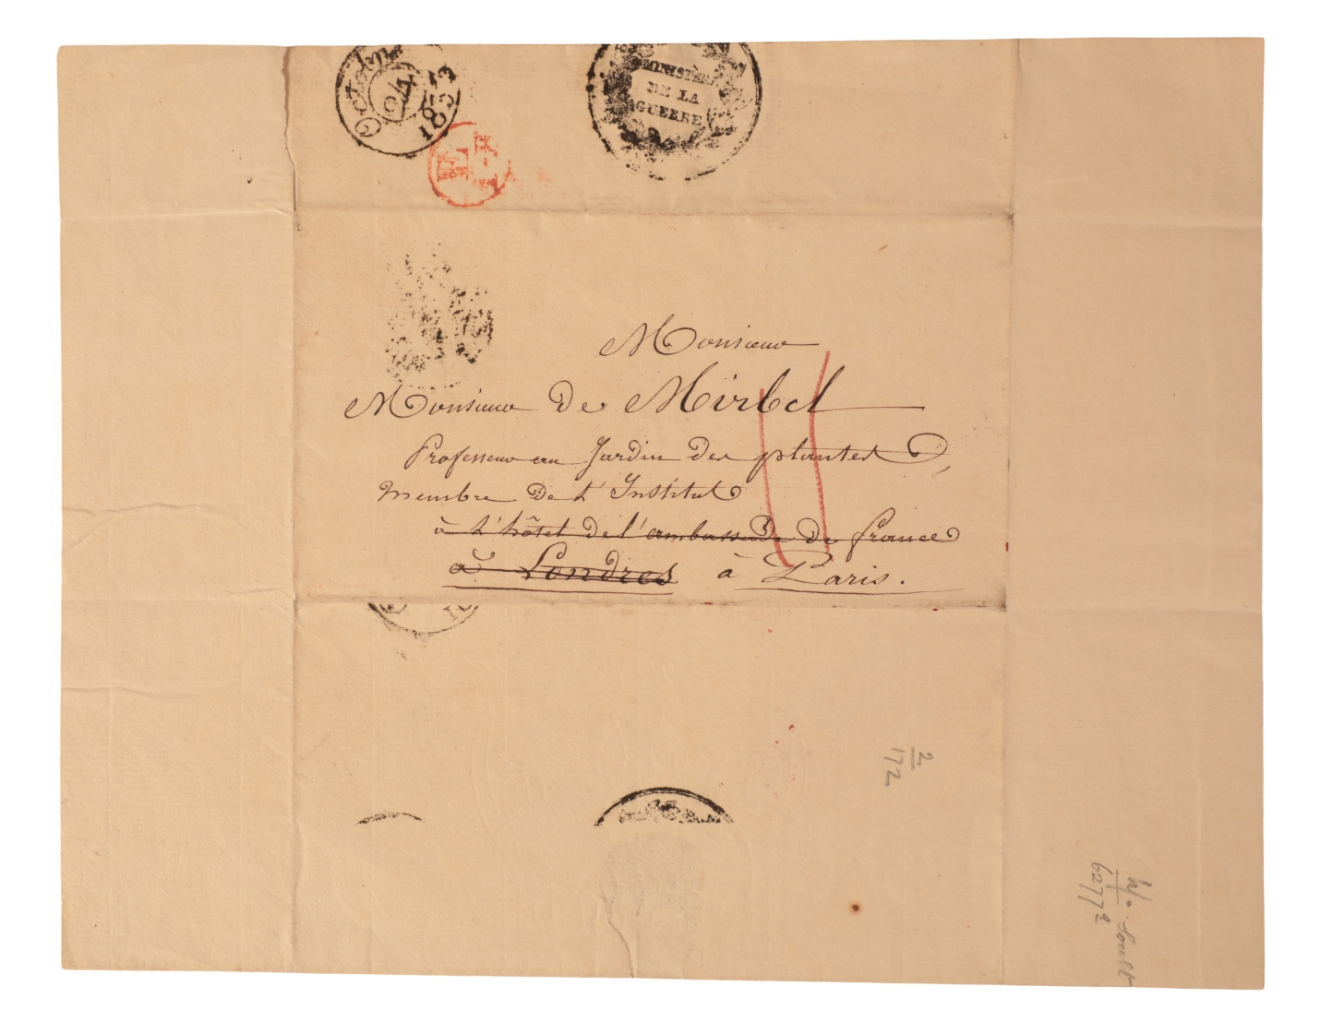 Octobre
24
1833
MINISTÈRE
DE LA
GUERRE
Monsieur
Monsieur de Mirbel
Professeur au Jardin des plantes,
Membre de l'Institut
à l'hôtel de l'ambassade de France
à Londres à Paris.
2
172
W. Soult
6277a